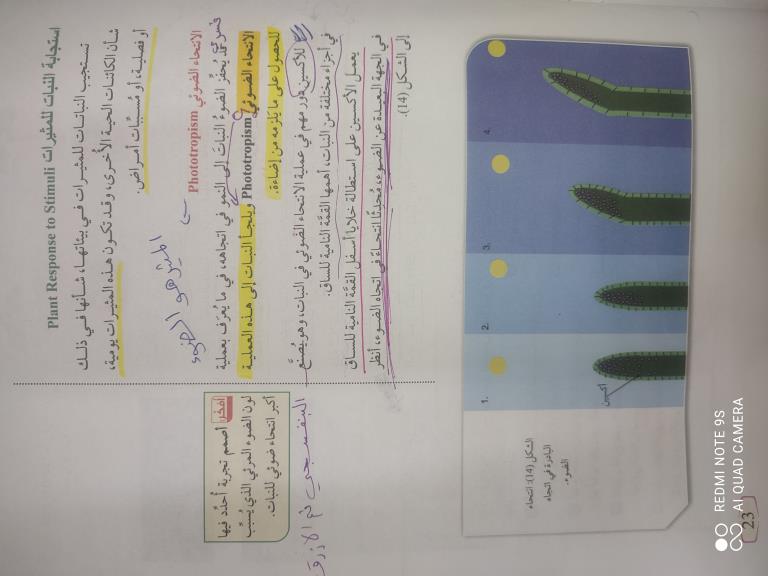 استجابة النبات للمثيرات Plant Response to Stimuli
تستجيب النباتات للمثيرات في بيئاتها، شأنها في ذلك
شأن الكائنات الحية الأخرى، وقد تكون هذه المثيرات يومية،
أو فصلية، أو مُسبِّبات أمراض.
المثير هو الضوء
الانتحاء الضوئي Phototropism
قد يُحفّز الضوءُ النباتَ إلى النمو في اتجاهه، في ما يُعرَف بعملية
الانتحاء الضوئي Phototropism ويلجأ النبات إلى هذه العملية
للحصول على ما يلزمه من إضاءة.
للأكسين دور مهم في عملية الانتحاء الضوئي في النبات، وهو يُصنَّع
في أجزاء مختلفة من النبات، أهمها القمَّة النامية للساق.
يعمل الأكسين على استطالة خلايا أسفل القمَّة النامية للساق
في الجهة البعيدة عن الضوء، مُحدِثًا انتحاءً في اتجاه الضوء، أنظر
إلى الشكل (14).
أفكر أصمم تجربة أُحدِّد فيها
لون الضوء المرئي الذي يُسبِّب
أكبر انتحاء ضوئي للنبات.
البنفسجي ثم الأزرق
الشكل (14): انتحاء
البادرة في اتجاه
الضوء.
1.
2.
3.
4.
أكسين
23
REDMI NOTE 9S
AI QUAD CAMERA